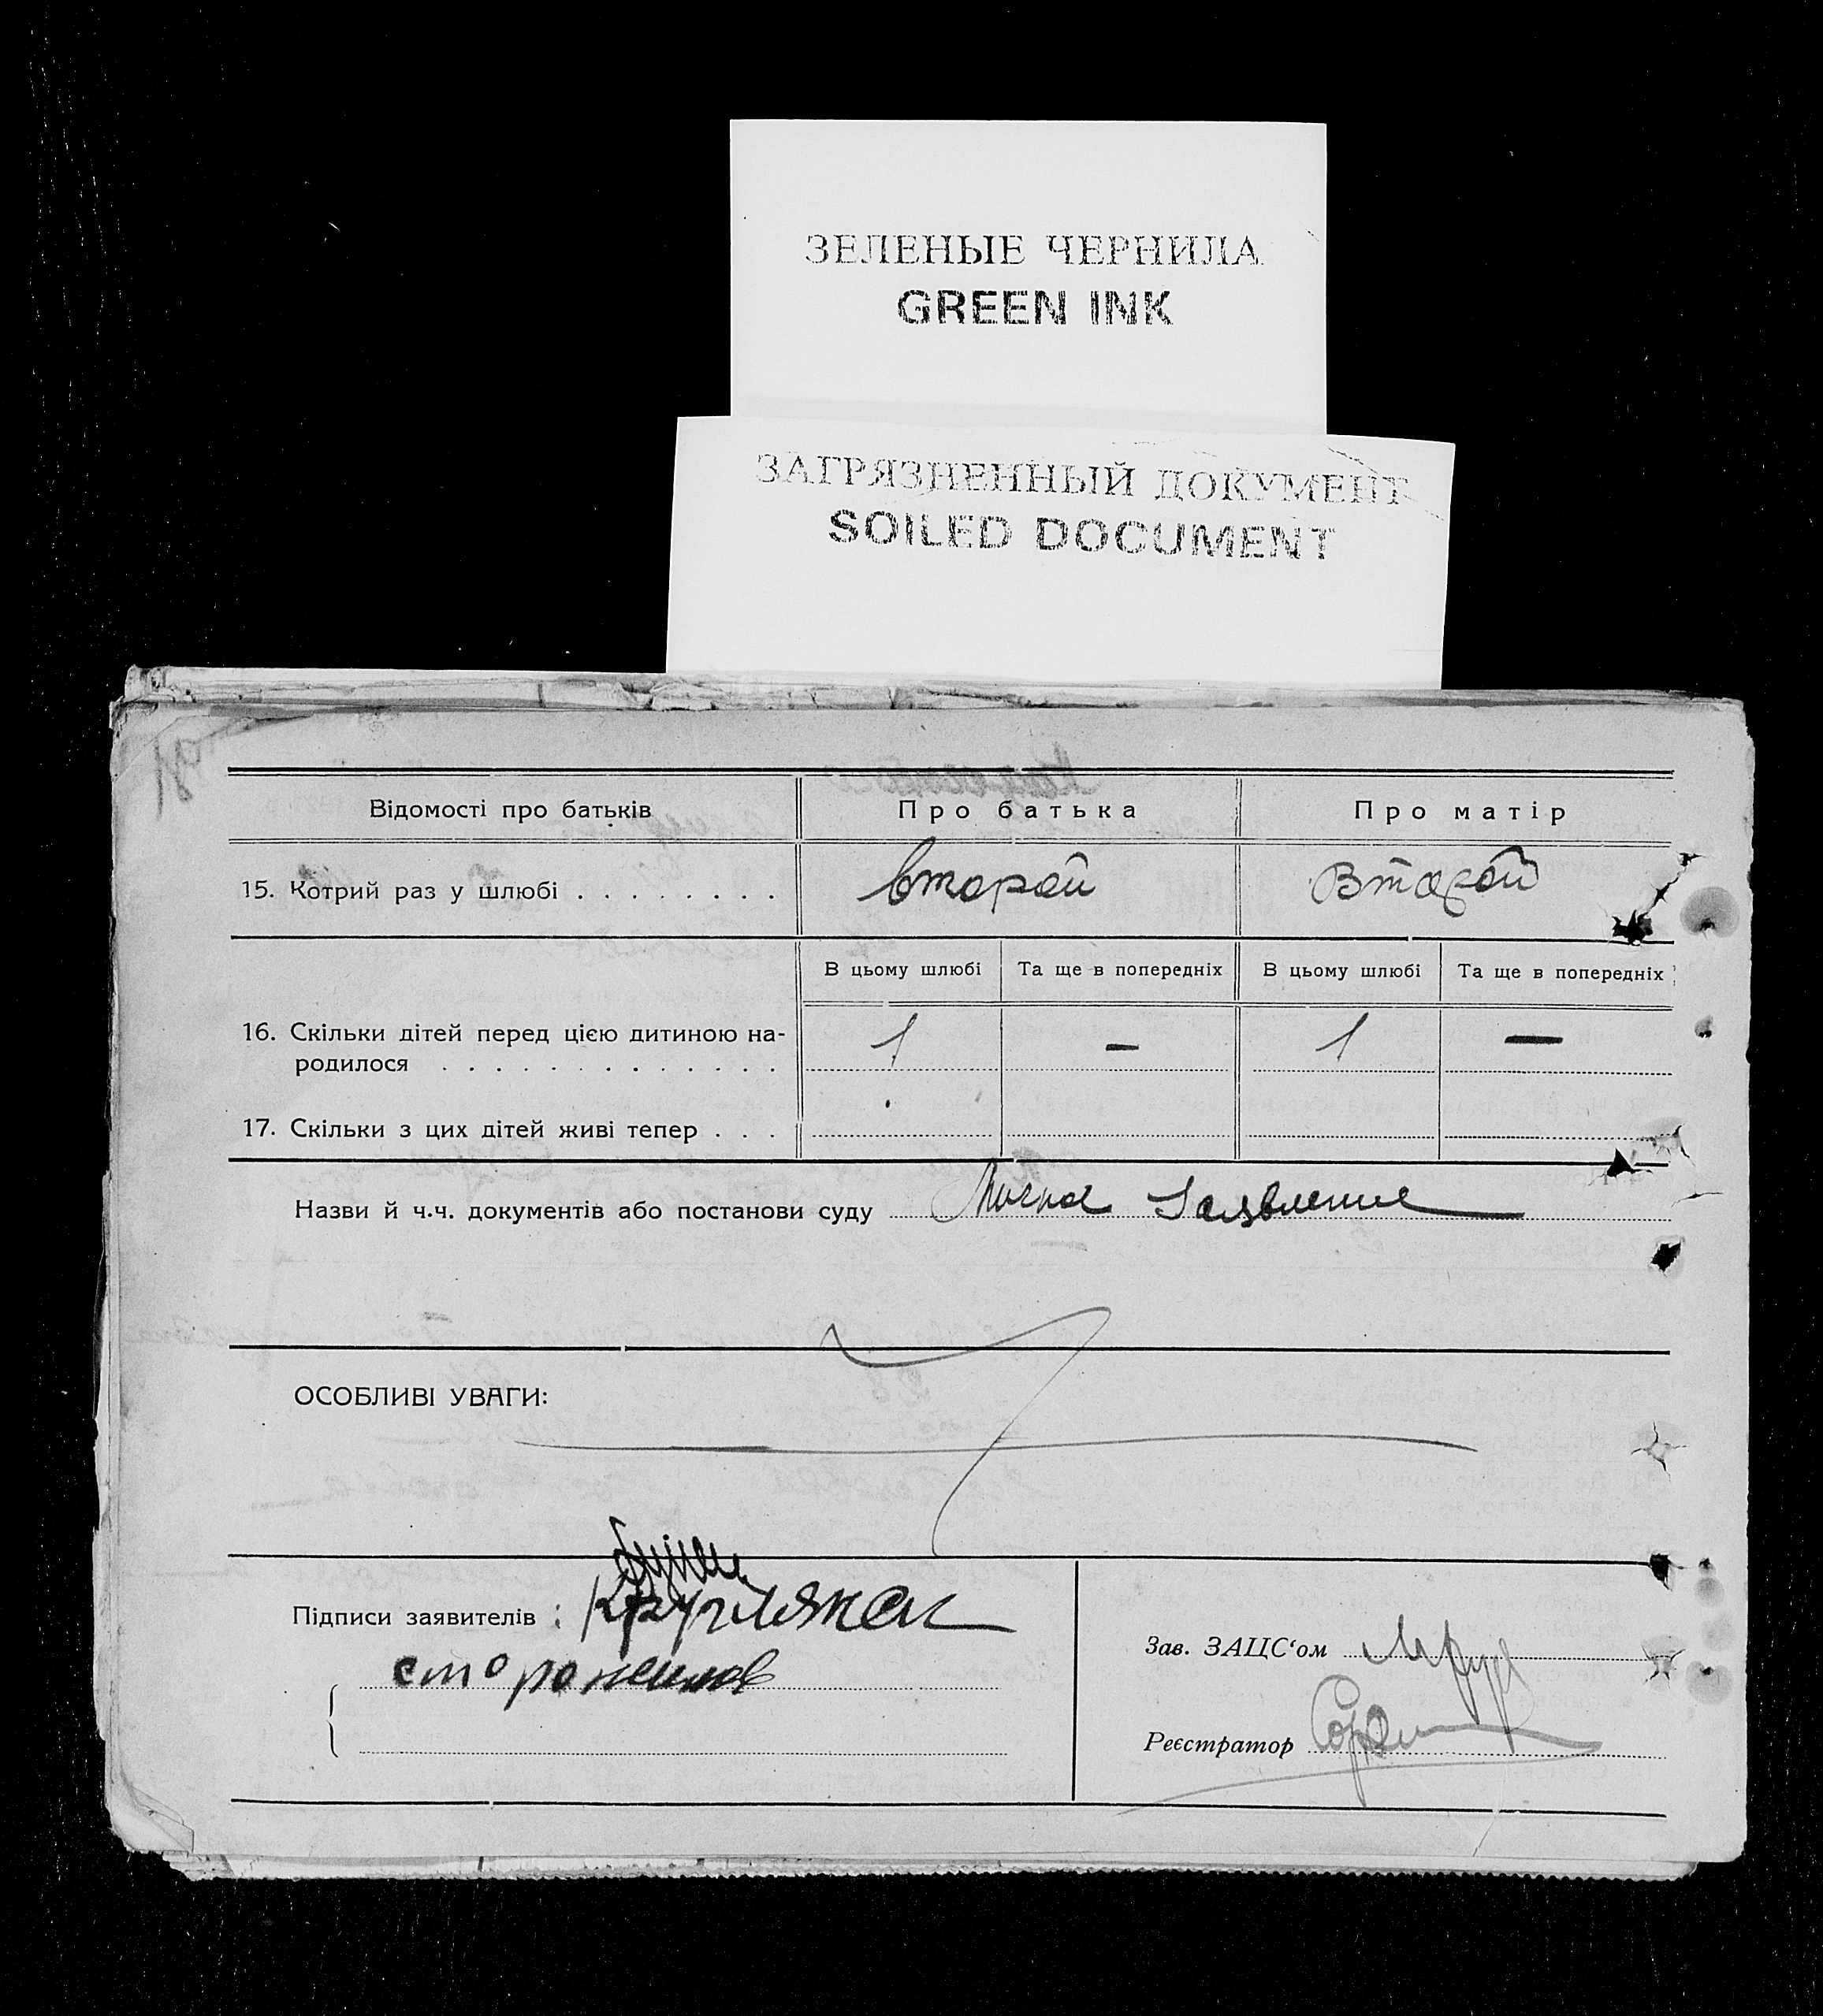 ЗЕЛЕНЫЕ ЧЕРНИЛА
GREEN INK
ЗАГРЯЗНЕННЫЙ ДОКУМЕНТ
SOILED DOCUMENT
Відомості про батьків Про батька Про матір
15. Котрий раз у шлюбі . . . . . . . . второй Второй
В цьому шлюбі Та ще в попередніх В цьому шлюбі Та ще в попередніх
16. Скільки дітей перед цією дитиною на-
родилося . . . . . . . . . . . . . 1 — 1 —
17. Скільки з цих дітей живі тепер . . .
Назви й ч.ч. документів або постанови суду Лична Заявление
ОСОБЛИВІ УВАГИ:
Підписи заявителів :
Зав. ЗАЦС‘ом
Реєстратор